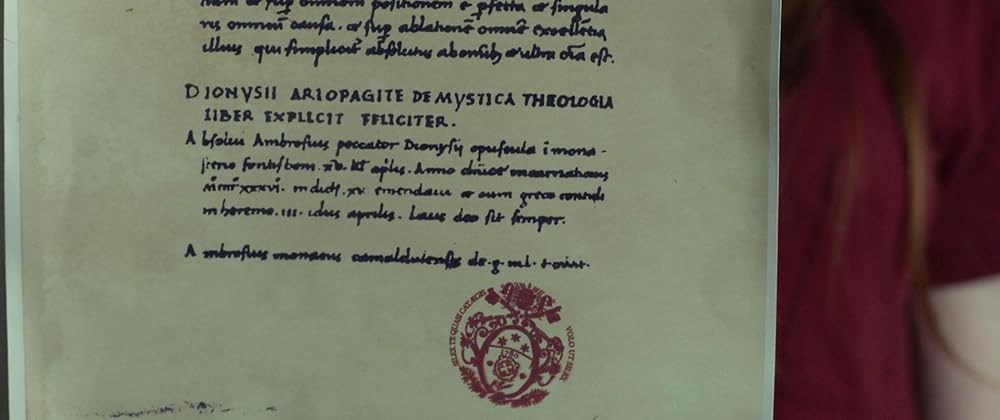 nis omniũ causa. et sup ablationẽ omnẽ excellẽtia
illius qui simplicit̃ absolutus ab omĩbȝ et ultra oĩa est.
DIONYSII ARIOPAGITE DE MYSTICA THEOLOGIA
LIBER EXPLICIT FELICITER.
Absolui Ambrosius peccator Dionysij opuscula ĩ mona-
sterio fontisboni. xv. kl̃ aplis. Anno dñice incarnationis
indict. xv emendaui et cum greco contuli
in heremo. iii. idus aprilis. Laus deo sit semper.
Ambrosius monacus camaldulensis
SILEX
VOLO UT SILEX
1780